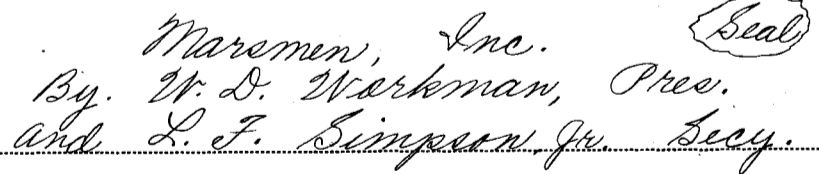 Marsmen, Inc. Seal
By. W. D. Workman, Pres.
and L. F. Simpson, Jr. Secy.